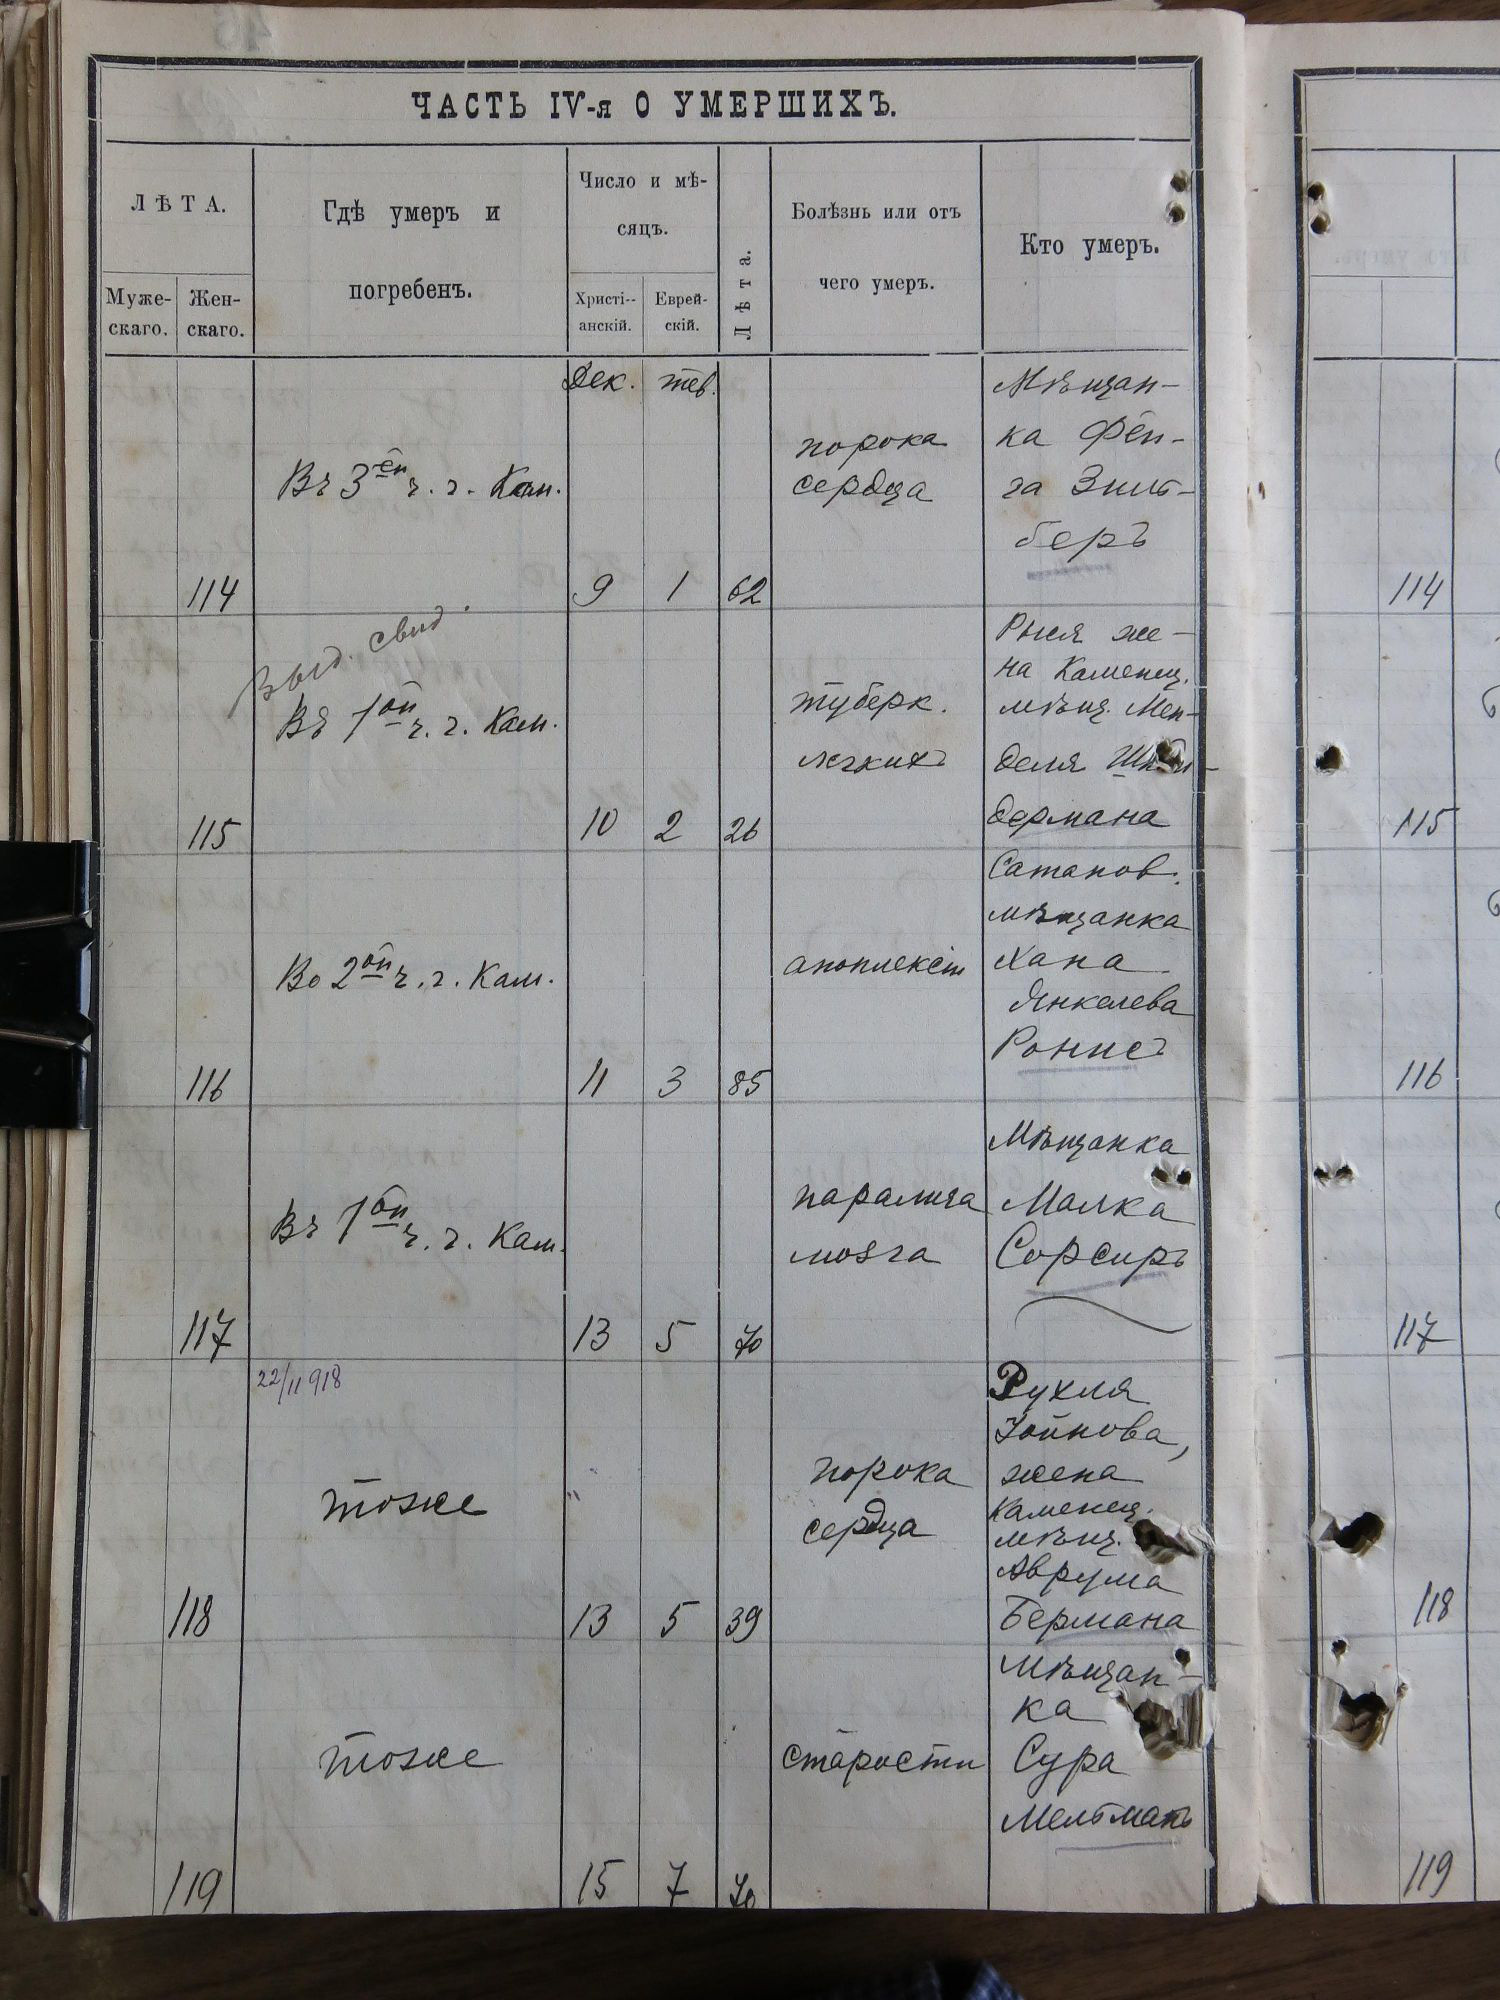 ЧАСТЬ IV-я О УМЕРШИХЪ.
ЛѢТА.
Муже-
скаго.
Жен-
скаго.
Гдѣ умеръ и
погребенъ.
Число и мѣ-
сяцъ.
Христі--
анскій.
Еврей-
скій.
Лѣта.
Болѣзнь или отъ
чего умеръ.
Кто умеръ.
Дек. тев.
114
Въ 3ей ч. г. Кам.
9 1 62
порока
сердца
Мѣщан-
ка Фей-
га Зиль-
беръ
114
Выд. свид.
115
Въ 1ой ч. г. Кам.
10 2 26
туберк.
легкихъ
Рыся же-
на Каменец.
мѣщ. Мен-
деля
дермана
115
116
Во 2ой ч. г. Кам.
11 3 85
апоплексіи
Сатанов.
мѣщанка
Хана
Янкелева
Ронисъ
116
117
Въ 1ой ч. г. Кам.
13 5 70
паралича
мозга
Мѣщанка
Малка
Сорсиръ
117
22/II 918
118
тоже
13 5 39
порока
сердца
Рухля
жена
Каменец.
мѣщ.
Аврума
Бермана
118
119
тоже
15 7 70
старости
Мѣщан-
ка
Сура
Мельманъ
119